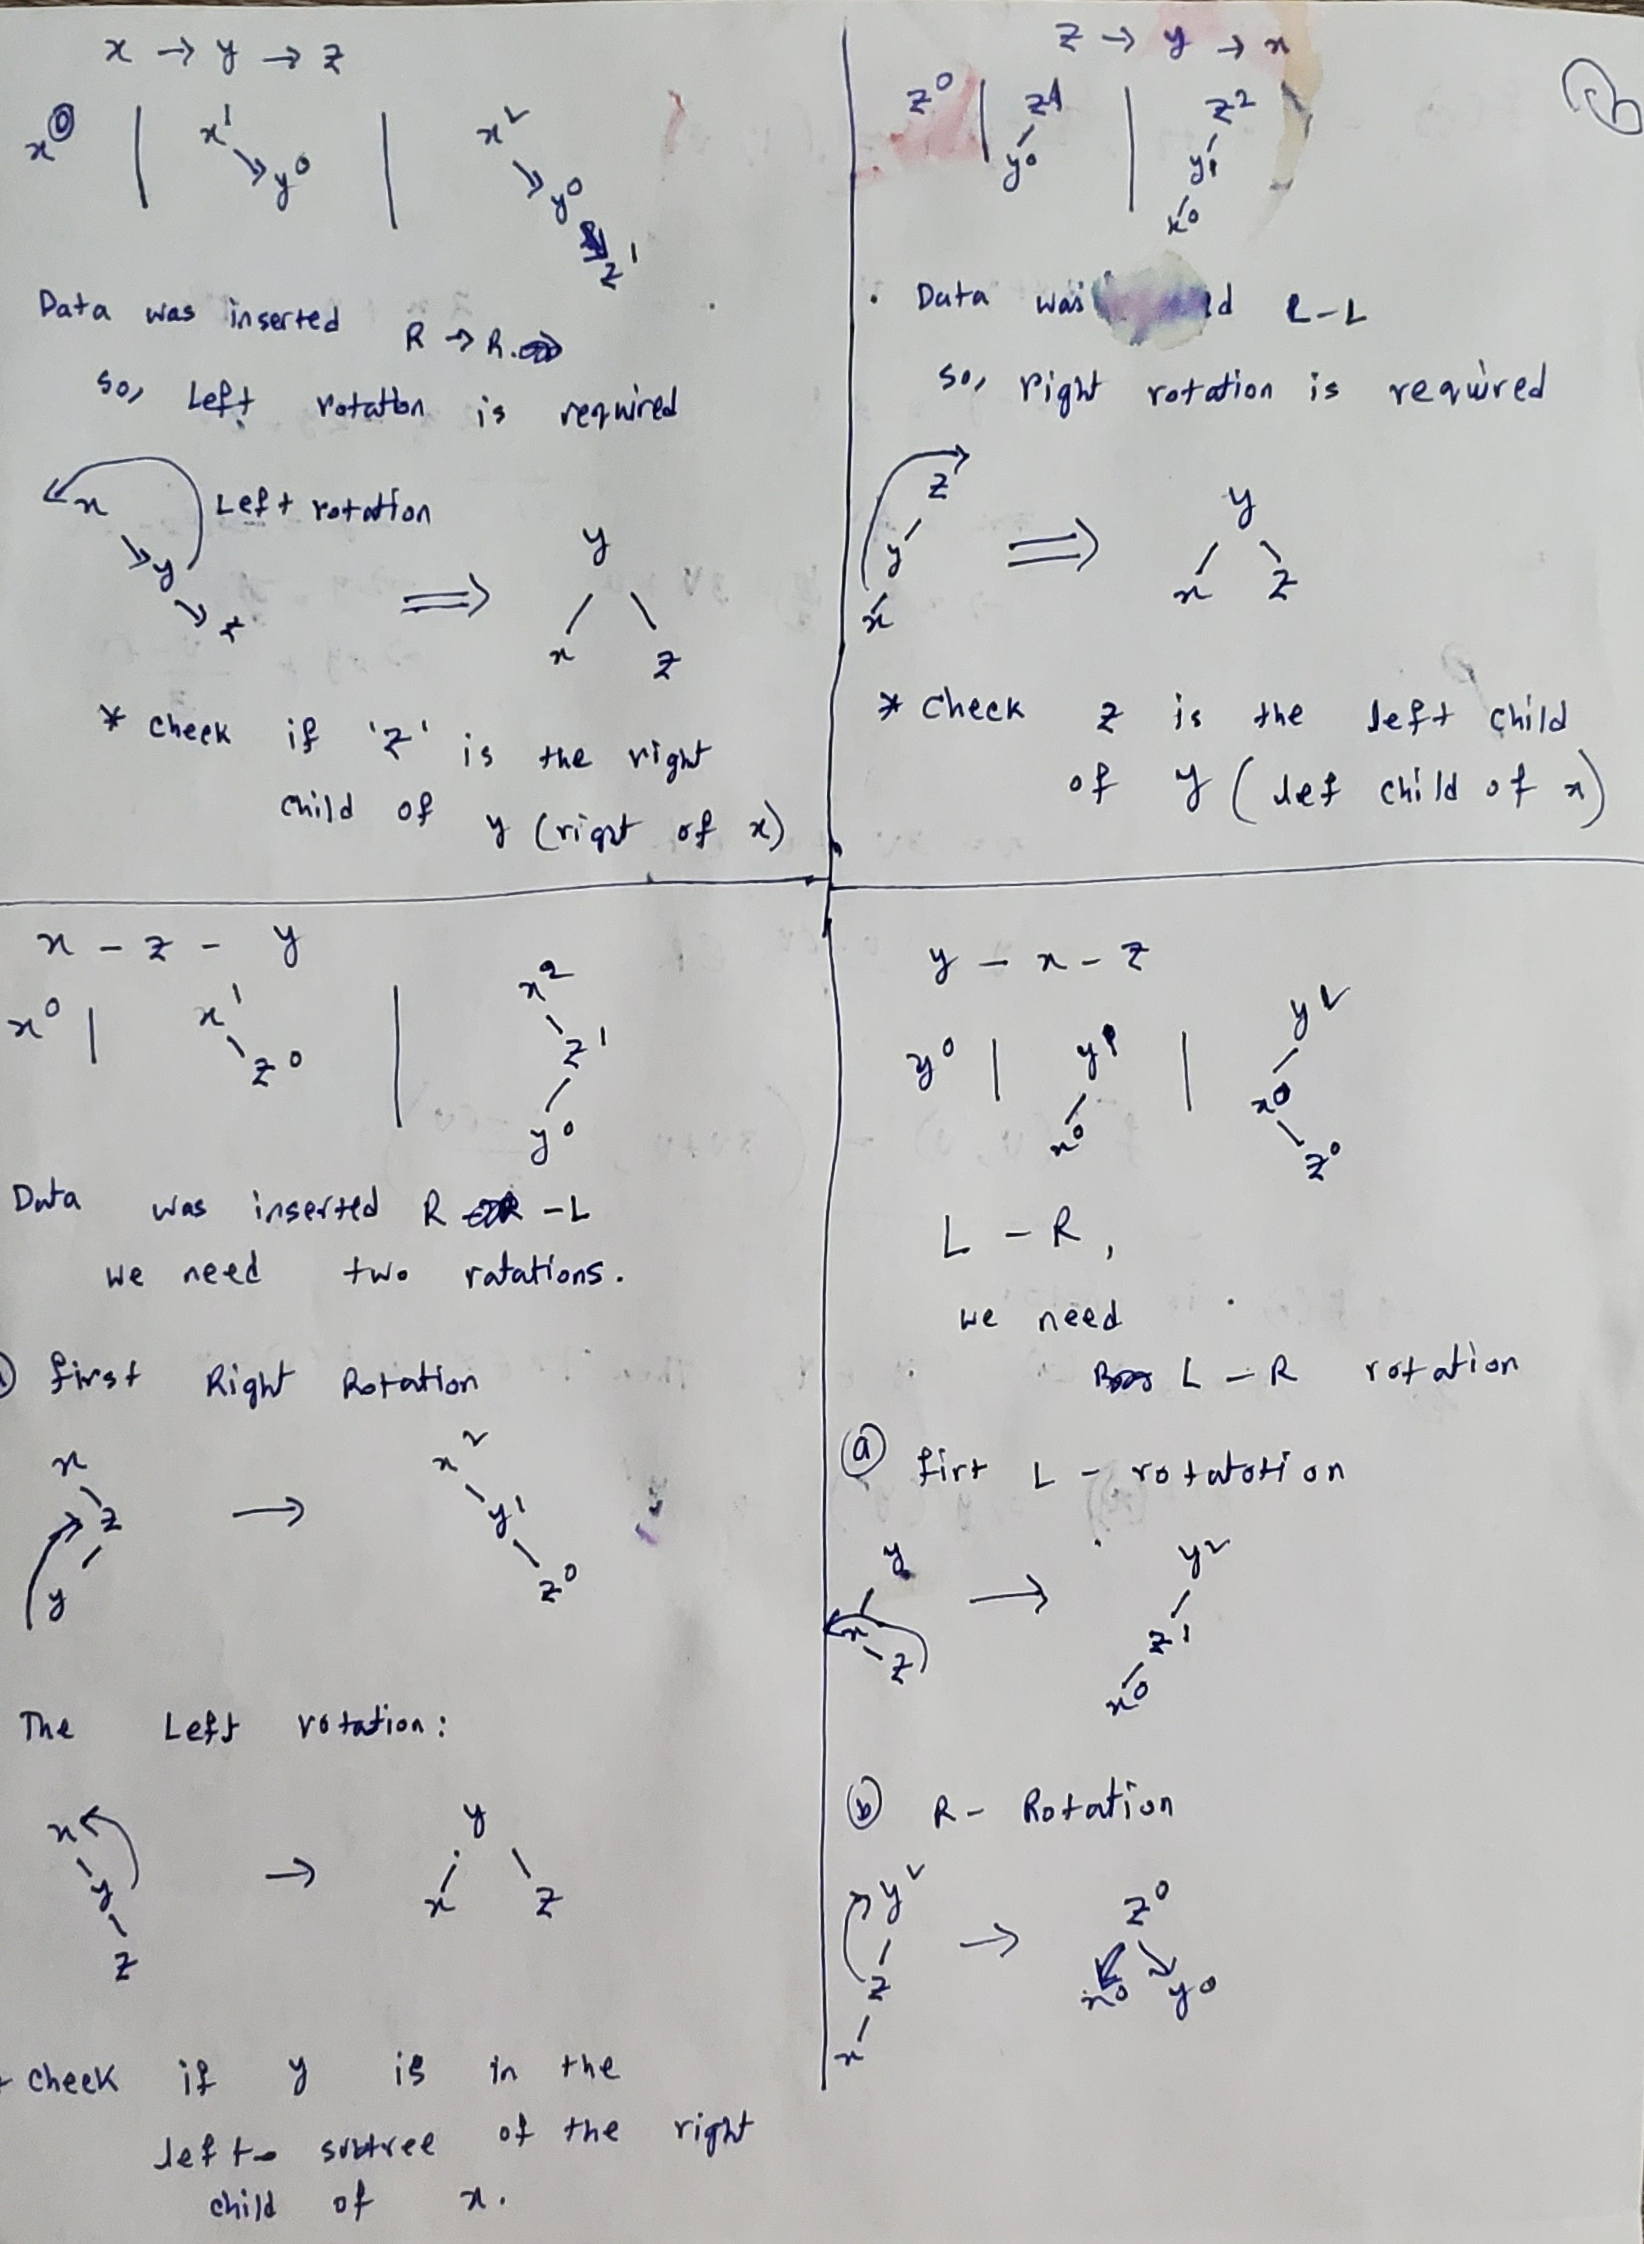 x → y → z
x⁰ | x¹ y⁰ | x² y⁰ z¹
Data was inserted R → R.
so, Left rotation is required
x y z Left rotation ⇒ y x z
* check if 'z' is the right
child of y (right of x)
z → y → x
z⁰ | z¹ y⁰ | z² y¹ x⁰
. Data was d L-L
so, right rotation is required
z y x ⇒ y x z
* check z is the left child
of y (lef child of x)
x - z - y
x⁰ | x¹ z⁰ | x² z¹ y⁰
Data was inserted R -L
we need two ratations.
first Right Rotation
x z y → x² y¹ z⁰
The Left rotation:
x y z → y x z
check if y is in the
left subtree of the right
child of x.
y - x - z
y⁰ | y¹ x⁰ | y² x⁰ z⁰
L - R,
we need
L - R rotation
(a) firt L - rotatotion
y x z → y² z¹ x⁰
(b) R- Rotation
y² z x → z⁰ x⁰ y⁰